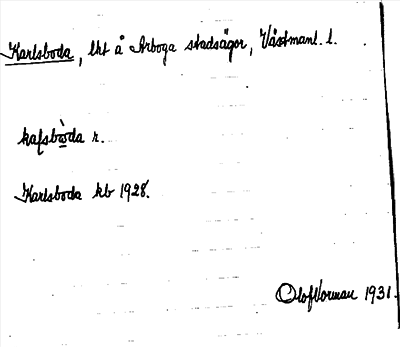 Karlsboda, lht å Arboga stadsägor, Västmanl. l.
kafsbòda r.
Karlsboda kb 1928.
Olof Norman 1931.